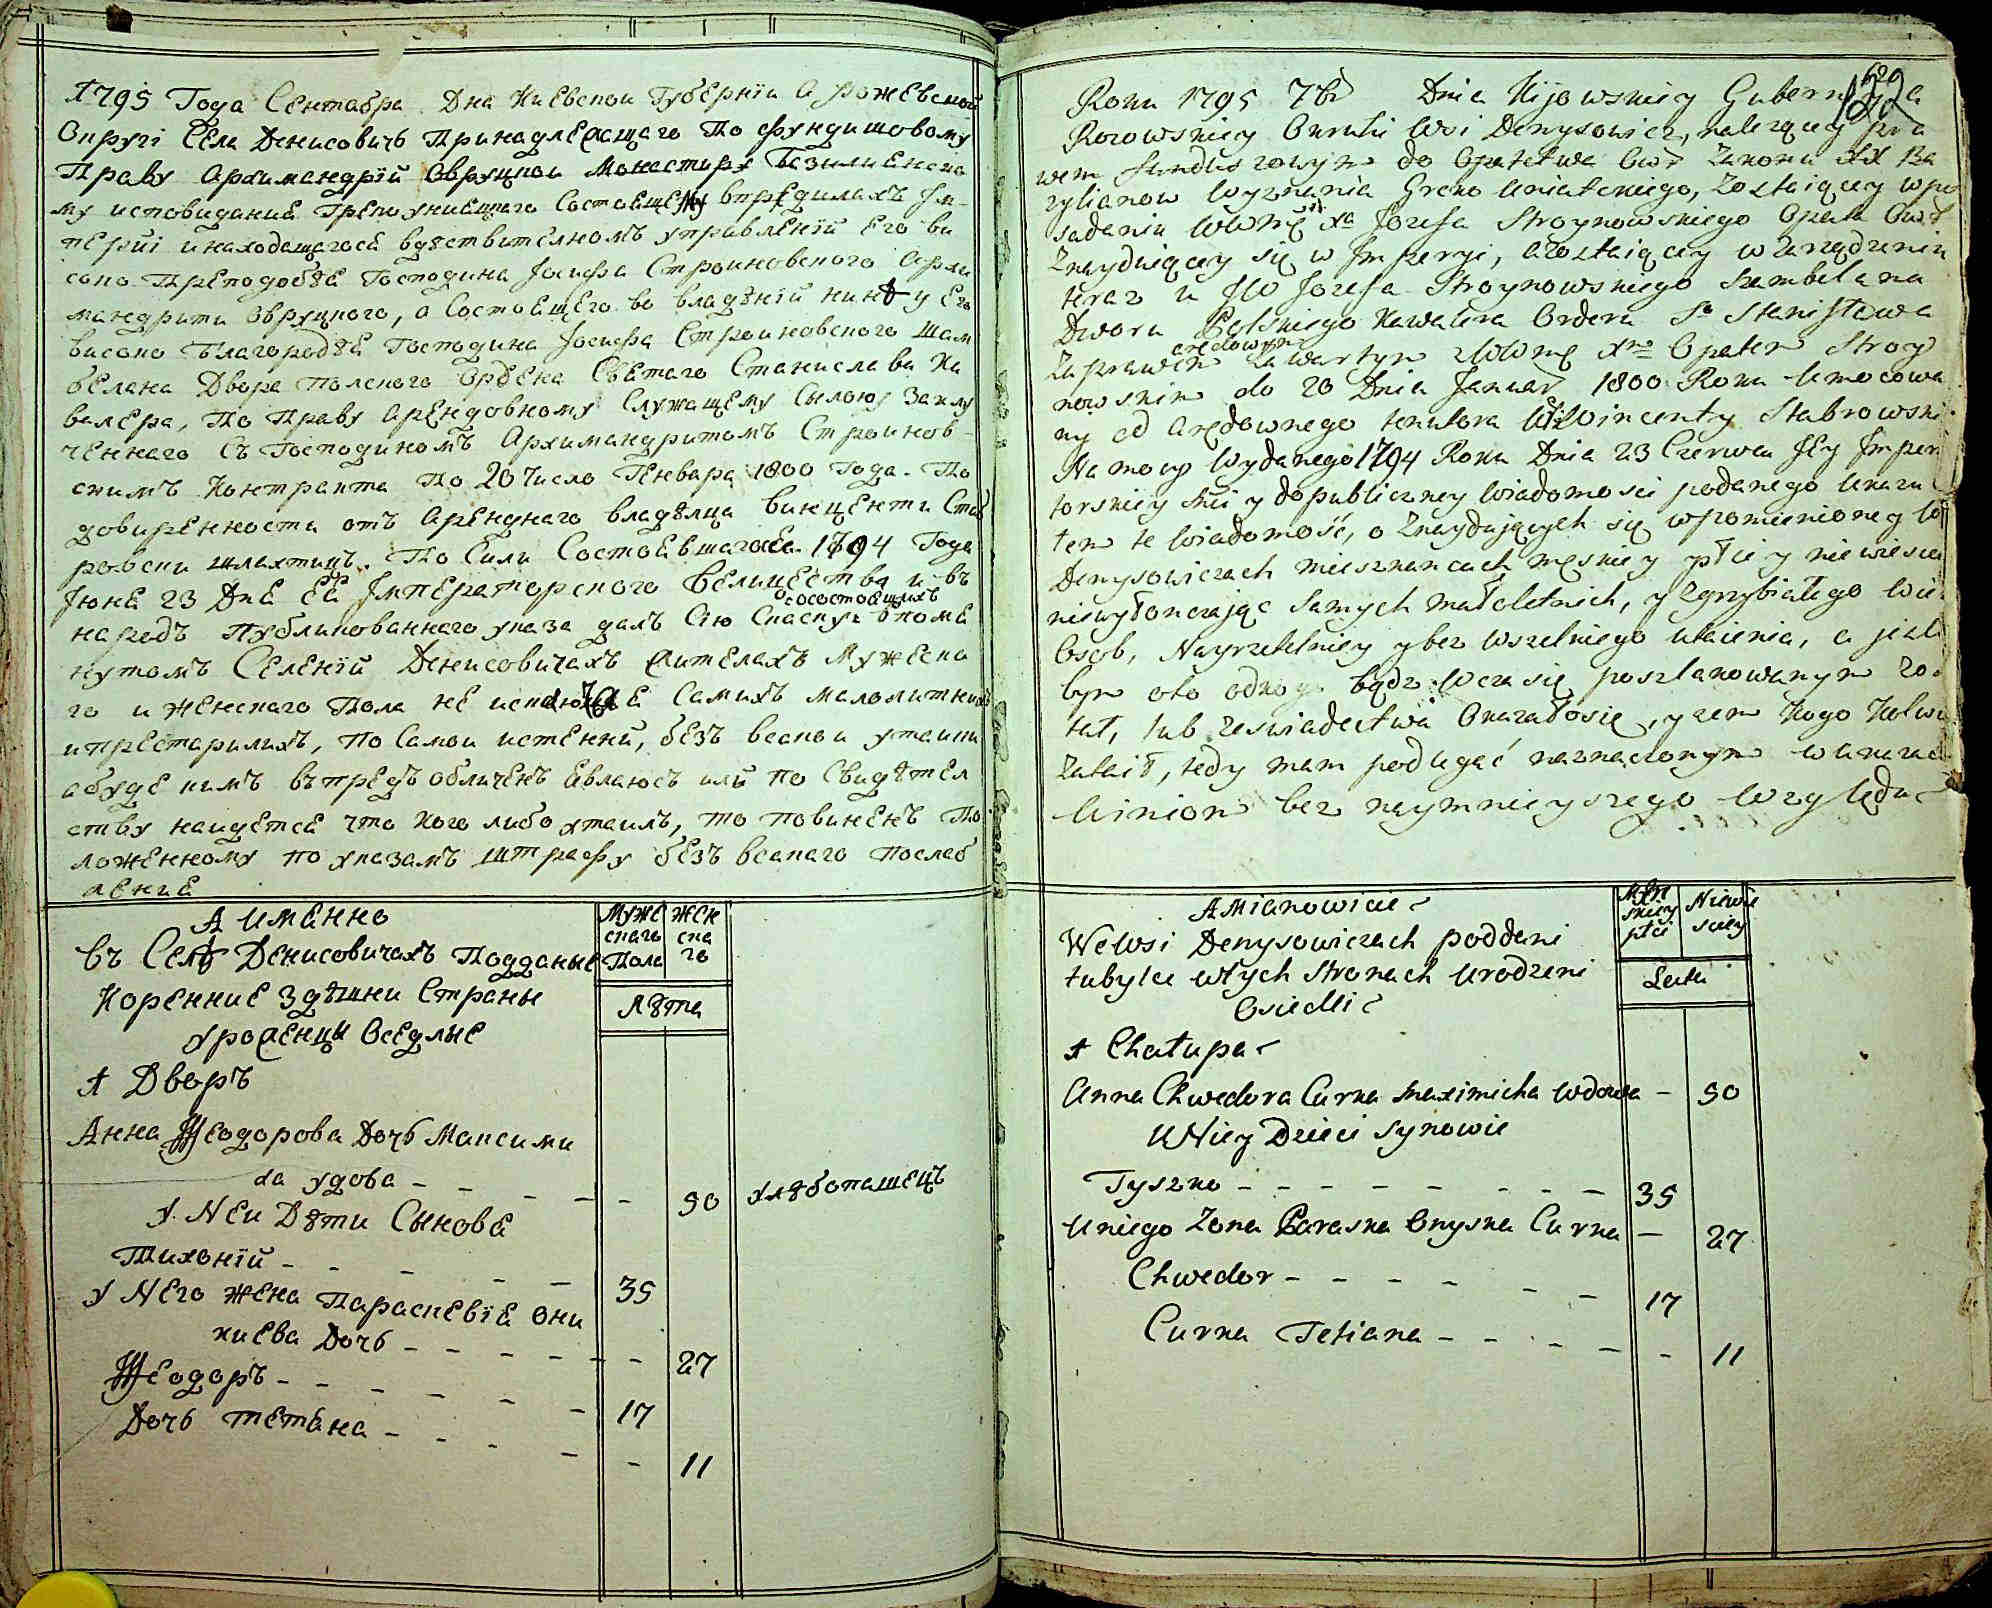 1795 Года Сентабра Дна Киевскои Губернїи
Округі Села Денисовичъ Принадлежащаго По фундушовому
Праву Архимандрїи Овруцкои Монастиру Базилианско
му исповиданиѣ Греко униѣцкого Состоѣщему впредилахъ Им
періи и находащагосѣ вдѣствителномъ управленїи Его ви
соко Преподобѣѣ Господина Іосифа Строиновского Архи
мандрити Овруцкого, а Состоѣщего во владѣнїи нинѣ у Его
високо Благородѣѣ Господина Іосифа Строиновского Шам
белана Двора полского Ордена Свѣтаго Станислава Ка
валера, По Праву Арендовному Служащему Сылою Заклу
ченнаго Съ Господиномъ Архимандритомъ Строинов
скимъ Контракта По 20 Число Генвара 1800 Года. По
довиренности отъ Аренднаго владѣлца винценти Стаб
ровски шлахтицъ. По Сили Состоѣвшагосѣ 1794 Года
Июнѣ 23 Днѣ Еѣ Императорского величества и въ
сосостоѣщихъ
народъ публикованнаго указа далъ Сію Сказку
нутомъ Селенїи Денисовичахъ жителахъ Мужеска
го и женскаго Пола не исключаѣ Самихъ малолитних
и престарилихъ, по Самои истенни, безъ всѣкои утаики
а буде кимъ въ предъ обличенъ ѣвлаюсъ или по Свидѣтел
ству наидетсѣ что кого либо утаилъ, то повиненъ По
ложенному по указамъ штрафу безъ всѣкаго послаб
лениѣ
А имѣнно
въ Селѣ Денисовичахъ Подданые
Коренние Здѣшни Страны
Уроженцы Оседлые
Мужескаго Пола
Женскаго
Лѣта
1 Дворъ
Анна Ѳеодорова Дочь Максими
ха удова - - - - - 50 хлѣбопашецъ
У Неи Дѣти Сыновѣ
Тихонїй - - - - - 35
У Него жена Параскевїѣ Они
киева Дочь - - - - - - 27
Ѳеодоръ - - - - - - 17
Дочь Тетѣна - - - - - - 11
Roku 1795 7br Dnia Kijowskiey Gubernyia
Rozowskiey Okruhi Wsi Denysowicz, należącey pra
wem funduszowym do Opatctwa Owr Zakonu XX Ba
zylianow Wyznania Greko Uniatckiego, Zostaiącey w po
sadaniu WWmę Xa Jozefa Stroynowskiego Opata Owr
Znayduiącey się w Imperyi, a zostaiącey w zarządzeniu
teraz u JW Jozefa Stroynowskiego Szembelana
Dworu Polskiego Kawalera Ordera So Stanisława
arędowym
Za prawem zawartym z WWmę Xm Opatem Stroy
nowskim do 20 Dnia Januar 1800 Roku Umocowa
ny od Arędownego tenutora Wincenty Stabrowski
Na mocy Wydanego 1794 Roku Dnia 23 Czerwca Jey Imper
torskiey Mści y do publiczney Wiadomości podanego Ukazu
tem te Wiadomość, o Znaydujących się wpomienioney W
Denysowiczach mieszkancach męskiey płci y niewiescie
niewyłonczając Samych małoletnich, y Zgrzybiałego Wie
Osob, Nayrzetelniey y bez wszelniego Utaienia, a jezli
bym oto odkogo bądz wczasie poszlakowanym zo
tał, lub ze swiadectwa Okazałosie, yzem Kogo Kolwie
Zataił, tedy mam podlegać naznaczonym w Ukazach
Winiom bez naymnieyszego Względu
A Mianowicie
We Wsi Denysowiczach poddani
tubylce w tych stronach Urodzeni
Osiedli
Męskiey płci
Niewiesciey
Latta
1 Chałupa
Anna Chwedora Curka Maximicha Wdowa - 50
U Niey Dzieci Synowie
Tyszko - - - - - - - - 35
U niego Zona Paraska Onyska Curka - 27
Chwedor - - - - - - 17
Curka Tetiana - - - - - - 11